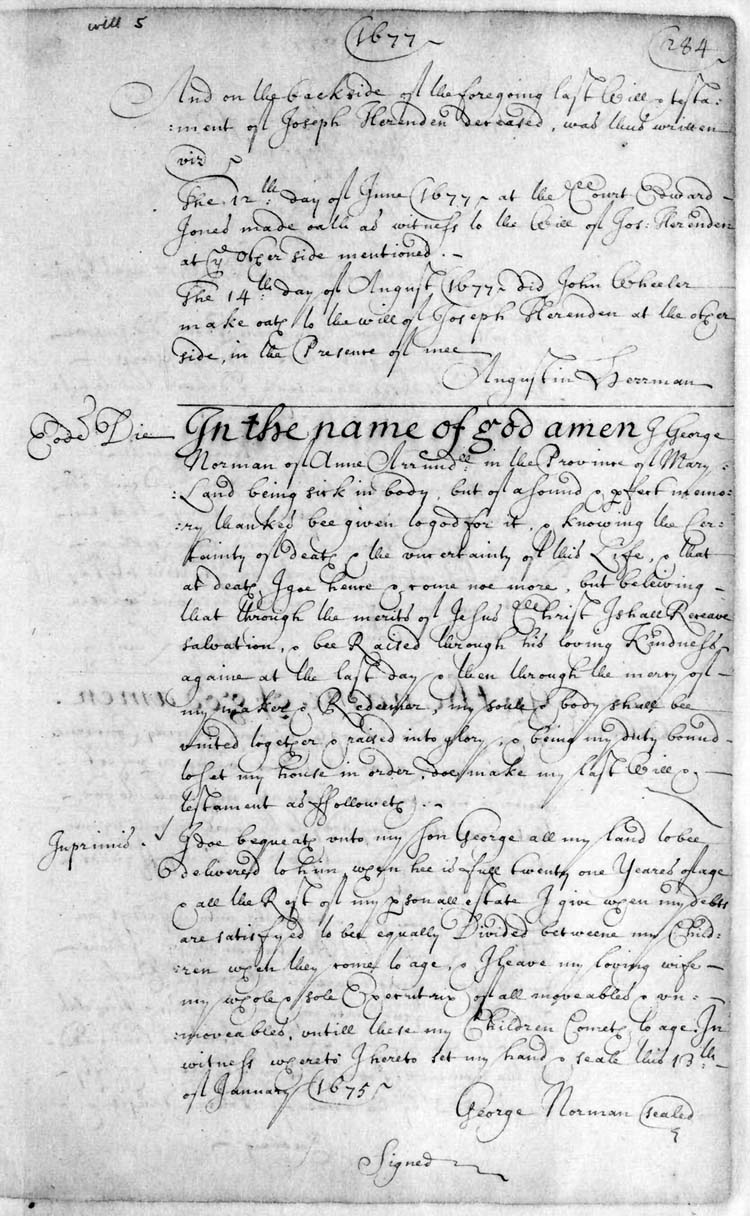 will 5
1677
284
And on the backside of the foregoing last Will & testa:
:ment of Joseph Herenden deceased, was thus written
viz
The 12th: day of June 1677 at the Court Edward
Jones made oath as witness to the Will of Jos: Herenden
at ye Other side mentioned.
The 14th day of August 1677 did John Wheeler
make oath to the will of Joseph Herenden at the other
side, in the Presence of mee
Augustin Herrman
Eodm Die In the name of god amen I George
Norman of Anne Arrundll in the Province of Mary:
:Land being sick in body, but of a sound & pfect memo:
:ry thankes bee given to god for it, & knowing the Cer:
tainty of death & the uncertainty of this Life, & that
at death I goe hence & come noe more, but beleiving
that through the merits of Jesus Christ I shall Receave
salvation, & bee Raised through his loving Kindness
againe at the last day & then through the mercy of
my maker & Redeemer, my soule & body shall bee
united together & raised into glory, & being my duty bound
to set my house in order, doe make my last Will &
testament as ffolloweth:
Inprimis. I doe bequeath unto my son George all my land to bee
delivered to him when hee is full twenty one Yeares of age
& all the Rest of my psonall estate I give when my debts
are satisfyed to bee equally Divided betweene my Child:
:ren when they come to age, & I leave my loving wife
my whole & sole Executrix of all moveables & un:
:moveables, untill these my Children Cometh to age. In
witness whereto I hereto set my hand & seale this 13th
of January 1675
George Norman sealed
Signed